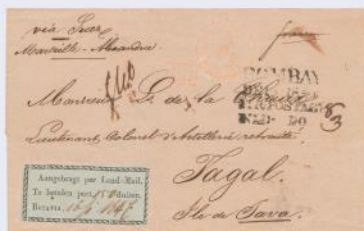 via Suez
Marseille - Alexandrie
franco
BOMBAY
Monsieur G. de la
Lieutenant Colonel d'Artillerie retraité
Tagal.
Ile de Java.
Aangebragt per Land-Mail.
Te betalen port 150 duiten.
BATAVIA, 1847